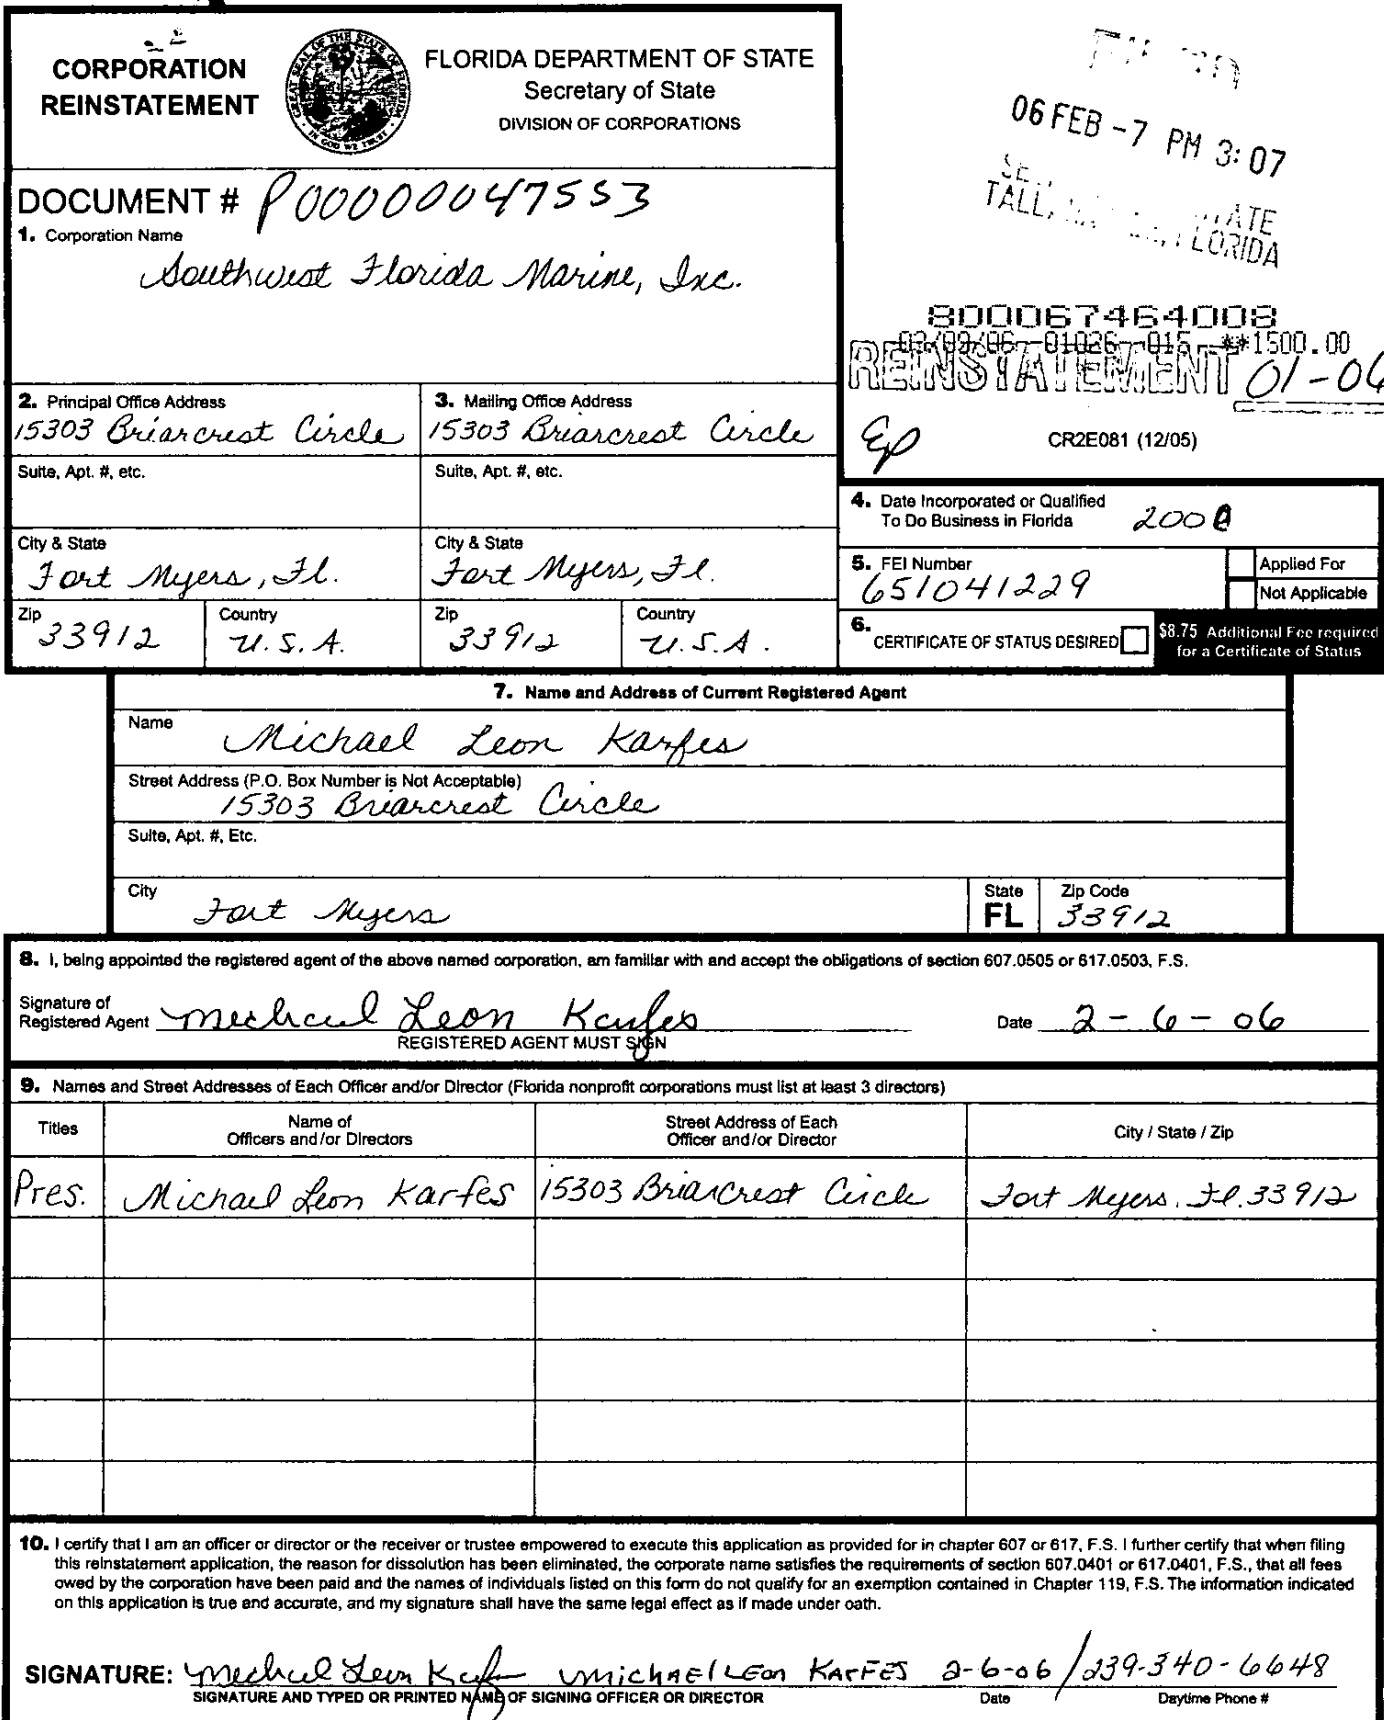 CORPORATION
REINSTATEMENT
GREAT SEAL OF THE STATE OF FLORIDA
IN GOD WE TRUST
FLORIDA DEPARTMENT OF STATE
Secretary of State
DIVISION OF CORPORATIONS
06 FEB -7 PM 3:07
FLORIDA
DOCUMENT # P00000047553
1. Corporation Name
Southwest Florida Marine, Inc.
800067464008
01026--015 **1500.00
REINSTATEMENT 01-06
CR2E081 (12/05)
2. Principal Office Address
15303 Briarcrest Circle
3. Mailing Office Address
15303 Briarcrest Circle
Suite, Apt. #, etc.
Suite, Apt. #, etc.
City & State
Fort Myers, Fl.
City & State
Fort Myers, Fl.
Zip
33912
Country
U.S.A.
Zip
33912
Country
U.S.A.
4. Date Incorporated or Qualified
To Do Business in Florida 2000
5. FEI Number
651041229
Applied For
Not Applicable
6. CERTIFICATE OF STATUS DESIRED
$8.75 Additional Fee required
for a Certificate of Status
7. Name and Address of Current Registered Agent
Name
Michael Leon Karfes
Street Address (P.O. Box Number is Not Acceptable)
15303 Briarcrest Circle
Suite, Apt. #, Etc.
City
Fort Myers
State
FL
Zip Code
33912
8. I, being appointed the registered agent of the above named corporation, am familiar with and accept the obligations of section 607.0505 or 617.0503, F.S.
Signature of
Registered Agent Michael Leon Karfes Date 2-6-06
REGISTERED AGENT MUST SIGN
9. Names and Street Addresses of Each Officer and/or Director (Florida nonprofit corporations must list at least 3 directors)
Titles
Name of
Officers and/or Directors
Street Address of Each
Officer and/or Director
City / State / Zip
Pres. Michael Leon Karfes 15303 Briarcrest Circle Fort Myers, Fl. 33912
10. I certify that I am an officer or director or the receiver or trustee empowered to execute this application as provided for in chapter 607 or 617, F.S. I further certify that when filing
this reinstatement application, the reason for dissolution has been eliminated, the corporate name satisfies the requirements of section 607.0401 or 617.0401, F.S., that all fees
owed by the corporation have been paid and the names of individuals listed on this form do not qualify for an exemption contained in Chapter 119, F.S. The information indicated
on this application is true and accurate, and my signature shall have the same legal effect as if made under oath.
SIGNATURE: Michael Leon Karfes Michael Leon Karfes 2-6-06 / 239-340-6648
SIGNATURE AND TYPED OR PRINTED NAME OF SIGNING OFFICER OR DIRECTOR
Date
Daytime Phone #